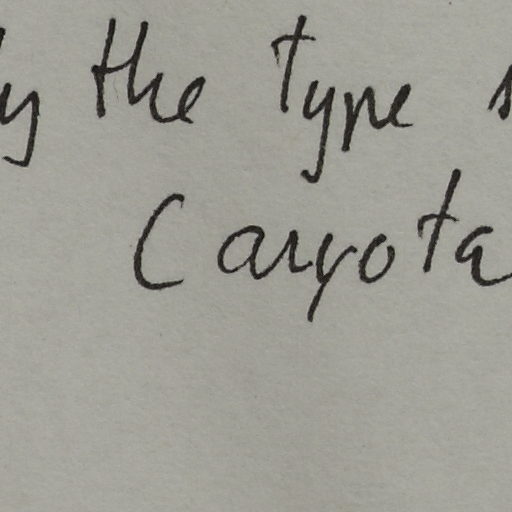 the type
Caryota